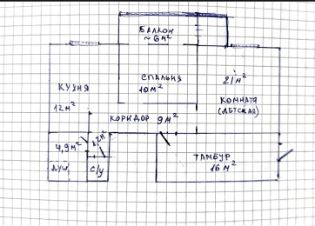 БАЛКОН
~6м²
КУХНЯ
12 м²
СПАЛЬНЯ
10м²
21м²
КОМНАТА
(ДЕТСКАЯ)
КОРИДОР 9м²
4,9м²
1,2м²
С/У
ТАМБУР
16 м²